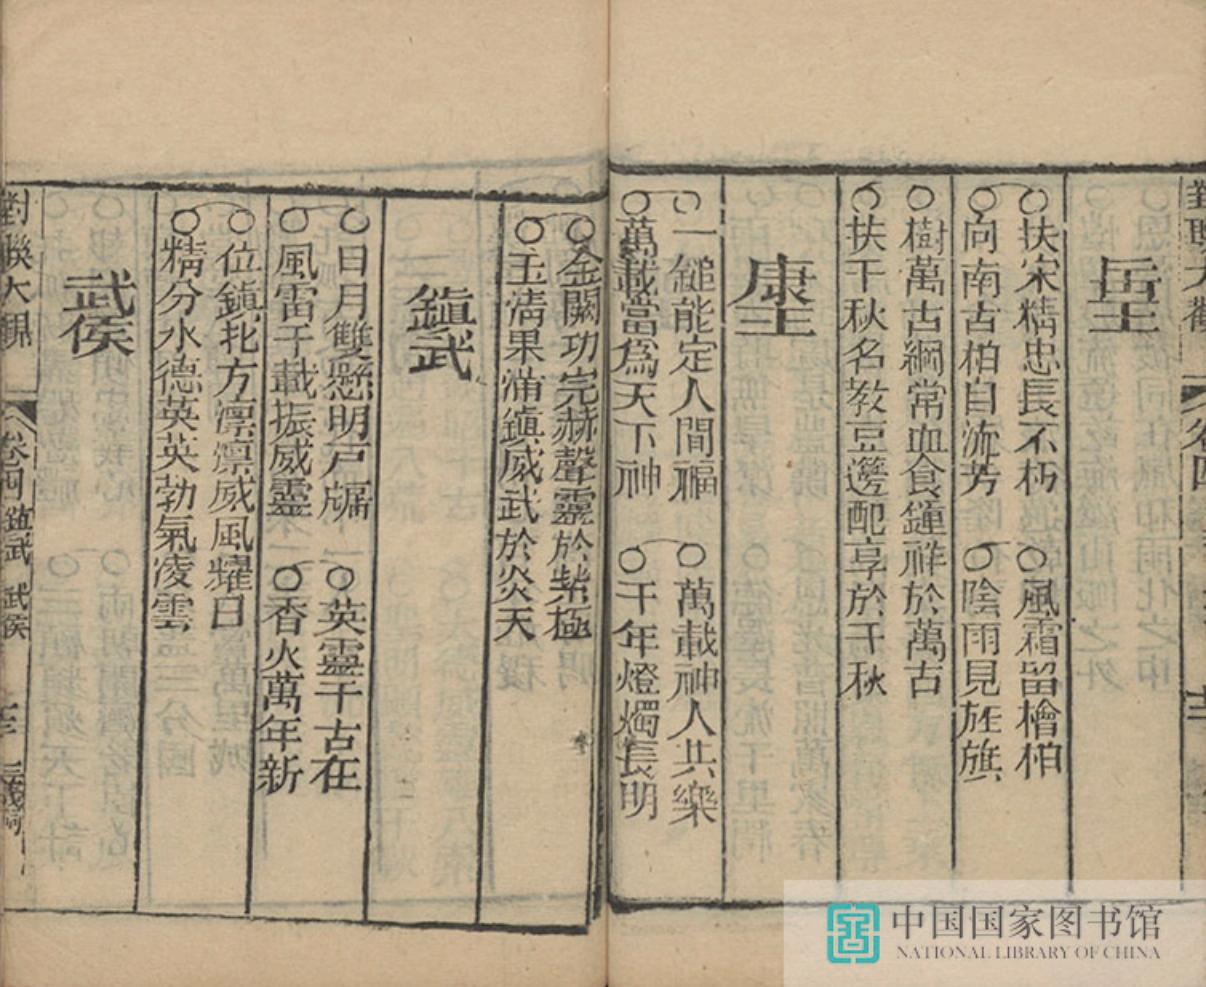 岳王
扶宋精忠長不朽 風霜留檜柏
向南古柏自流芳 陰雨見旌旗
樹萬古綱常血食鍾祥於萬古
扶千秋名教豆籩配享於千秋
康王
一縋能定人間福 萬載神人共樂
萬載當為天下神 千年燈燭長明
金闕功完赫聲靈於紫極
玉清果滿鎮威武於炎天
鎮武
日月雙懸明戸牖 英靈千古在
風雷千載振威靈 香火萬年新
位鎮北方凛凛威風耀日
精分水德英英勃氣凌雲
武侯
對聯大觀 卷四 鎮武 武侯
中国国家图书馆
NATIONAL LIBRARY OF CHINA